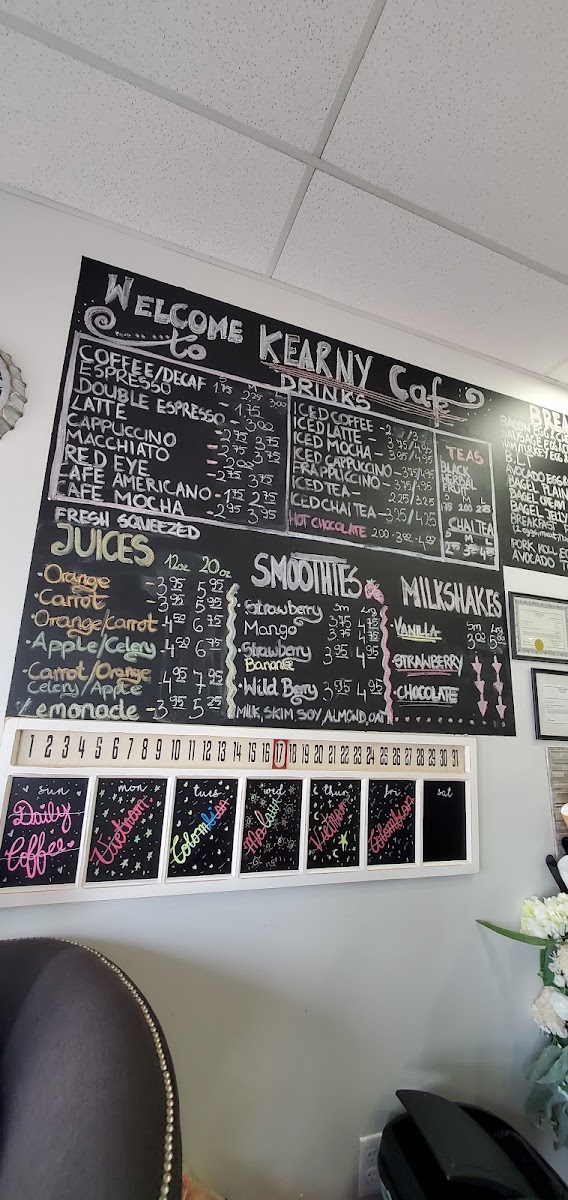 WELCOME
to
KEARNY Cafe
COFFEE/DECAF 1.75 2.25
M
ESPRESSO
DOUBLE ESPRESSO - 1.75
LATTE 3.00
CAPPUCCINO - 2.75 3.75
MACCHIATO - 2.75 3.75
RED EYE - 2.00
CAFE AMERICANO - 2.75 3.75
CAFE MOCHA - 1.75 2.75
- 2.95 3.95
DRINKS
ICED COFFEE
ICED LATTE -
ICED MOCHA - 3.75/4.75
ICED CAPPUCCINO - 3.95/4.95
FRAPPUCCINO - 3.75/4.75
ICED TEA -
ICED CHAI TEA - 2.25/3.25
3.25/4.25
HOT CHOCOLATE 2.00
TEAS
BLACK
HERBAL
FRUIT
S M L
1.75 2.00 2.25
CHAI TEA
S M L
FRESH SQUEEZED
JUICES
12oz 20oz
• Orange - 3.95 5.95
• Carrot - 3.95 5.95
• Orange/Carrot - 4.50 6.75
• Apple/Celery - 4.50 6.75
• Carrot/Orange
Celery/Apple - 4.95 7.95
Lemonade - 3.95 5.25
SMOOTHIES
Sm Lrg
• Strawberry 3.75 4.75
Mango 3.75 4.75
• Strawberry
Banana 3.95 4.95
• Wild Berry 3.95 4.95
MILK, SKIM, SOY, ALMOND, OAT
MILKSHAKES
• VANILLA
Sm Lrg
• STRAWBERRY
• CHOCOLATE
BAGEL PLAIN
BAGEL CREAM
BAGEL JELLY
BREAKFAST
PORK ROLL EG
AVOCADO T
1 2 3 4 5 6 7 8 9 10 11 12 13 14 15 16 17 18 19 20 21 22 23 24 25 26 27 28 29 30 31
sun
mon
tues
wed
thur
fri
sat
Daily
Coffee
Vietnam
Colombian
Malawi
Vietnam
Colombian